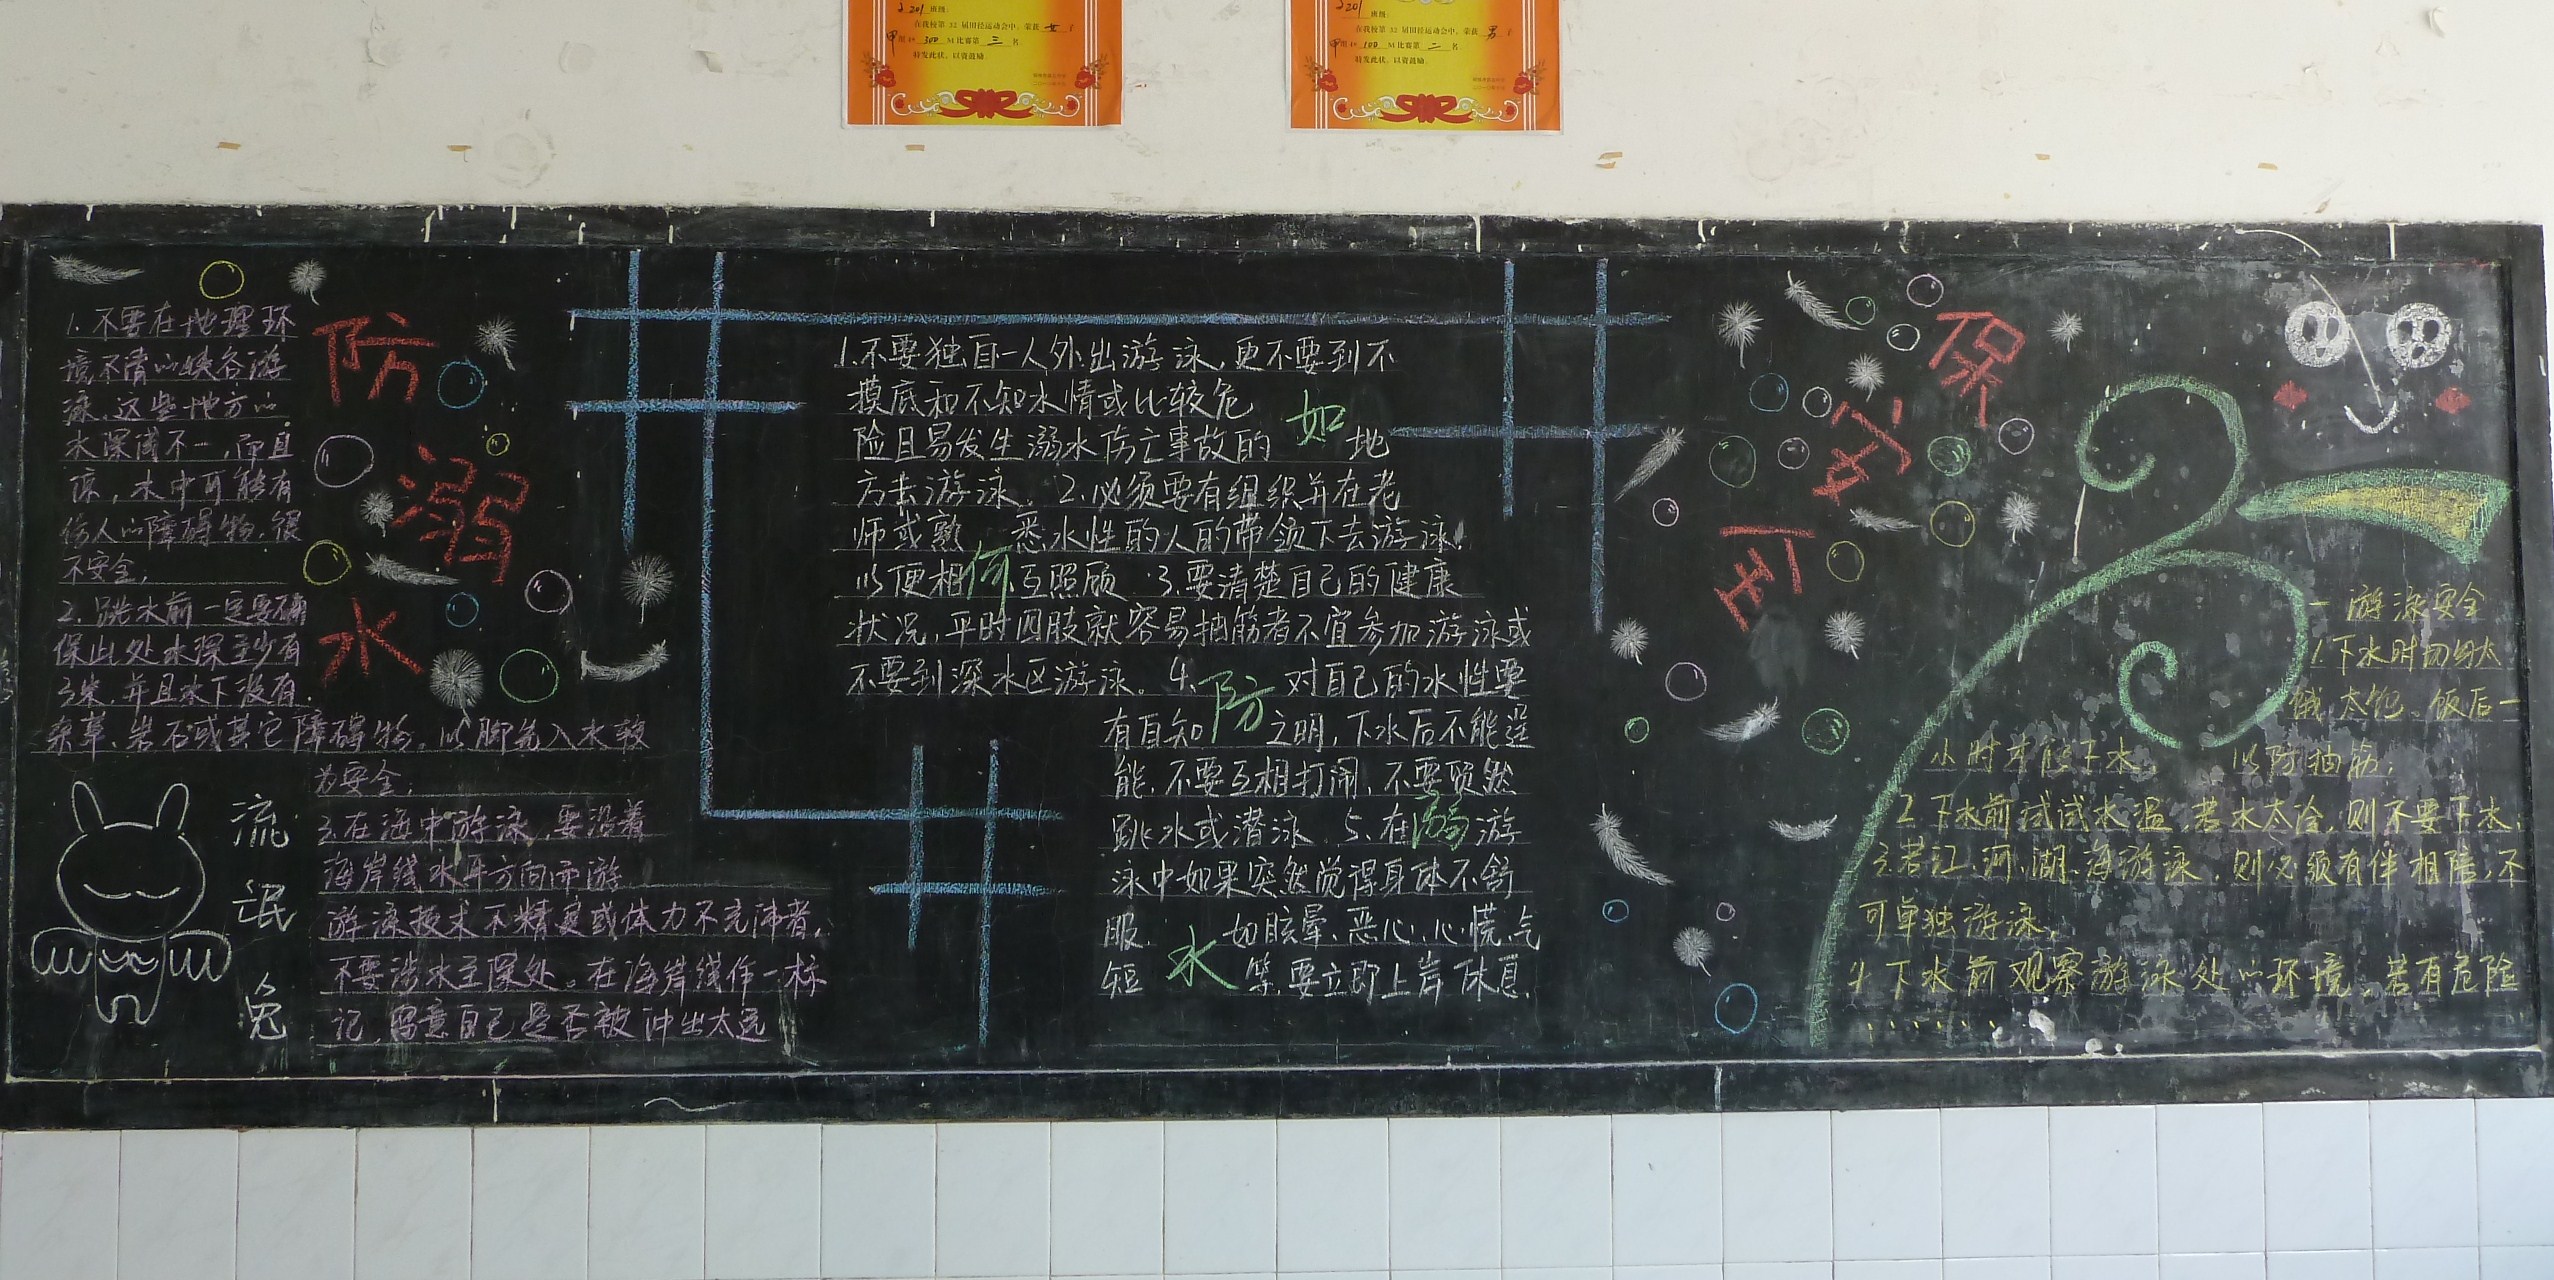 201 班级:
在我校第 32 届田径运动会中,荣获 女 子
甲 组 4× 300 M比赛第 三 名
特发此状,以资鼓励
201 班级:
在我校第 32 届田径运动会中,荣获 男 子
甲 组 4× 100 M比赛第 二 名
特发此状,以资鼓励
防
溺
水
1.不要在地理环
境不清的峡谷游
泳,这些地方的
水深浅不一,而且
凉,水中可能有
伤人的障碍物,很
不安全,
2.跳水前一定要确
保此处水深至少有
3米,并且水下没有
杂草、岩石或其它障碍物。以脚先入水较
为安全,
3.在海中游泳,要沿着
海岸线水平方向而游
游泳技术不精良或体力不充沛者,
不要涉水至深处。在海岸线作一标
记,留意自己是否被冲出太远
流
氓
兔
如
何
防
溺
水
1.不要独自一人外出游泳,更不要到不
摸底和不知水情或比较危
险且易发生溺水伤亡事故的 地
方去游泳。2.必须要有组织并在老
师或熟 悉水性的人的带领下去游泳,
以便相 互照顾 3.要清楚自己的健康
状况,平时四肢就容易抽筋者不宜参加游泳或
不要到深水区游泳。4. 对自己的水性要
有自知 之明,下水后不能逞
能,不要互相打闹,不要贸然
跳水或潜泳 5.在 游
泳中如果突然觉得身体不舒
服, 如眩晕、恶心、心慌、气
短 等,要立即上岸休息
保
安
一 游泳安全
1.下水时切勿太
饿、太饱。饭后一
小时才能下水, 以防抽筋;
2.下水前试试水温,若水太冷,则不要下水,
3.若江、河、湖、海游泳,则必须有伴相陪,不
可单独游泳,
4.下水前观察游泳处的环境,若有危险
......